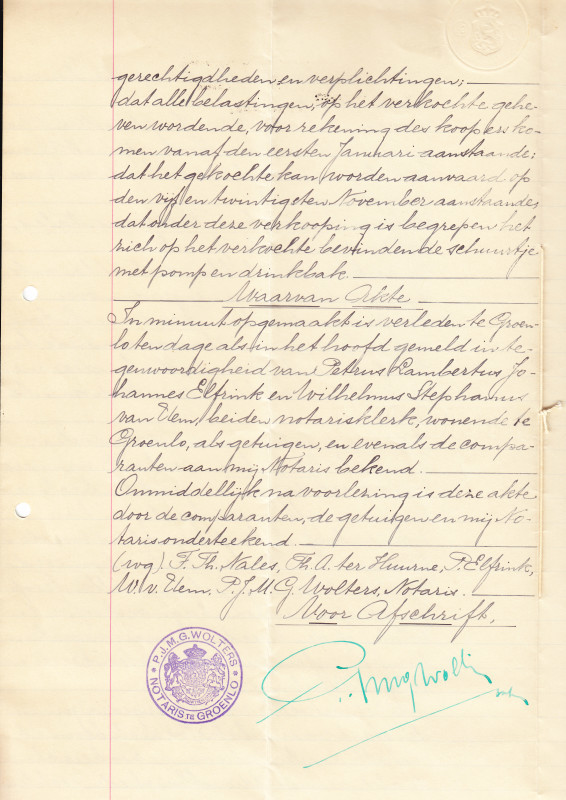 gerechtigdheden en verplichtingen;
dat alle belastingen, op het verkochte gehe-
ven wordende, voor rekening des koopers ko-
men vanaf den eersten Januari aanstaande;
dat het gekochte kan worden aanvaard op
den vijf en twintigsten November aanstaande;
dat onder deze verkooping is begrepen het
zich op het verkochte bevindende schuurtje
met pomp en drinkbak.
Waarvan Akte
In minuut opgemaakt is verleden te Groen-
lo ten dage als in het hoofd gemeld in te-
genwoordigheid van Petrus Lambertus Jo-
hannes Elfrink en Wilhelmus Stephanus
van Uem, beiden notarisklerk, wonende te
Groenlo, als getuigen, en evenals de compa-
ranten aan mij Notaris bekend.
Onmiddellijk na voorlezing is deze akte
door de comparanten, de getuigen en mij No-
taris onderteekend.
(wg). F. Th. Nales, Th. A. ter Huurne, P. Elfrink,
W. v. Uem, P. J. M. G. Wolters, Notaris.
Voor Afschrift.
P.J.M.G. WOLTERS
NOTARIS TE GROENLO